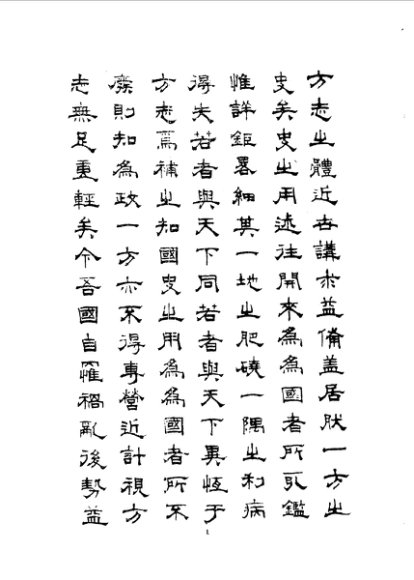 方志之體近世講求益備盖居然一方之
史矣史之用述往開來為為國者所引鑑
惟詳鉅畧細其一地之肥磽一隅之利病
得失若者與天下同若者與天下異恆于
方志焉補之知國史之用為為國者所不
廢則知為政一方亦不得專營近計視方
志無足重輕矣今吾國自罹禍亂後勢益